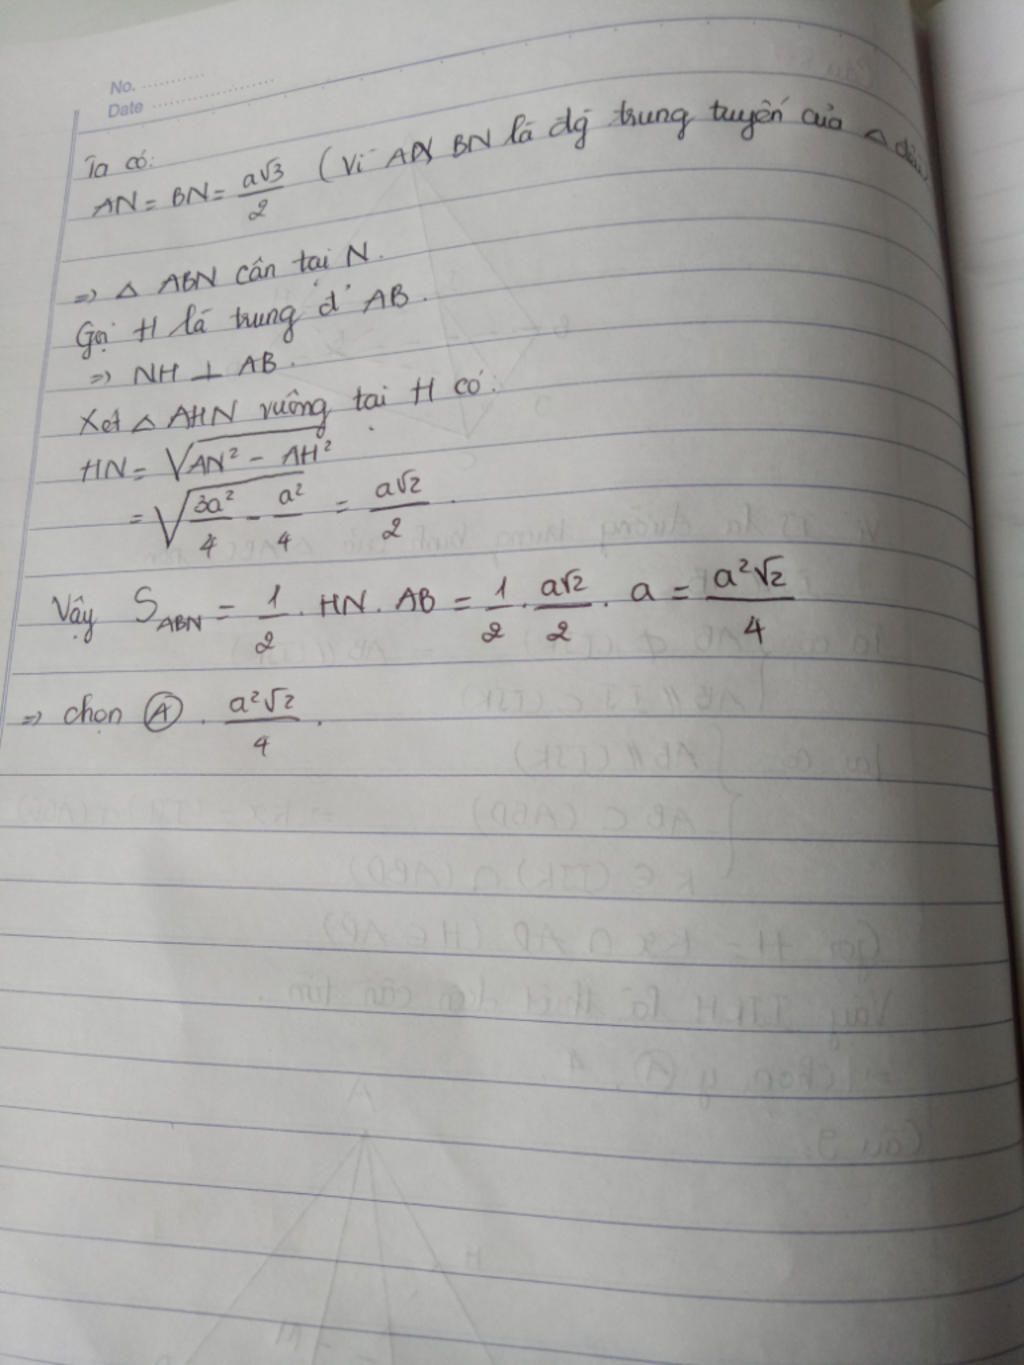 No.
Date
Ta có:
AN = BN = a√3/2 (Vì AN, BN là đg trung tuyến của △ đều)
⇒ △ ABN cân tại N.
Gọi H là trung đ' AB.
⇒ NH ⊥ AB.
Xét △ AHN vuông tại H có:
HN = √(AN² - AH²)
= √(3a²/4 - a²/4) = a√2/2.
Vậy S_ABN = 1/2 . HN . AB = 1/2 . a√2/2 . a = a²√2/4
⇒ chọn Ⓐ . a²√2/4 .